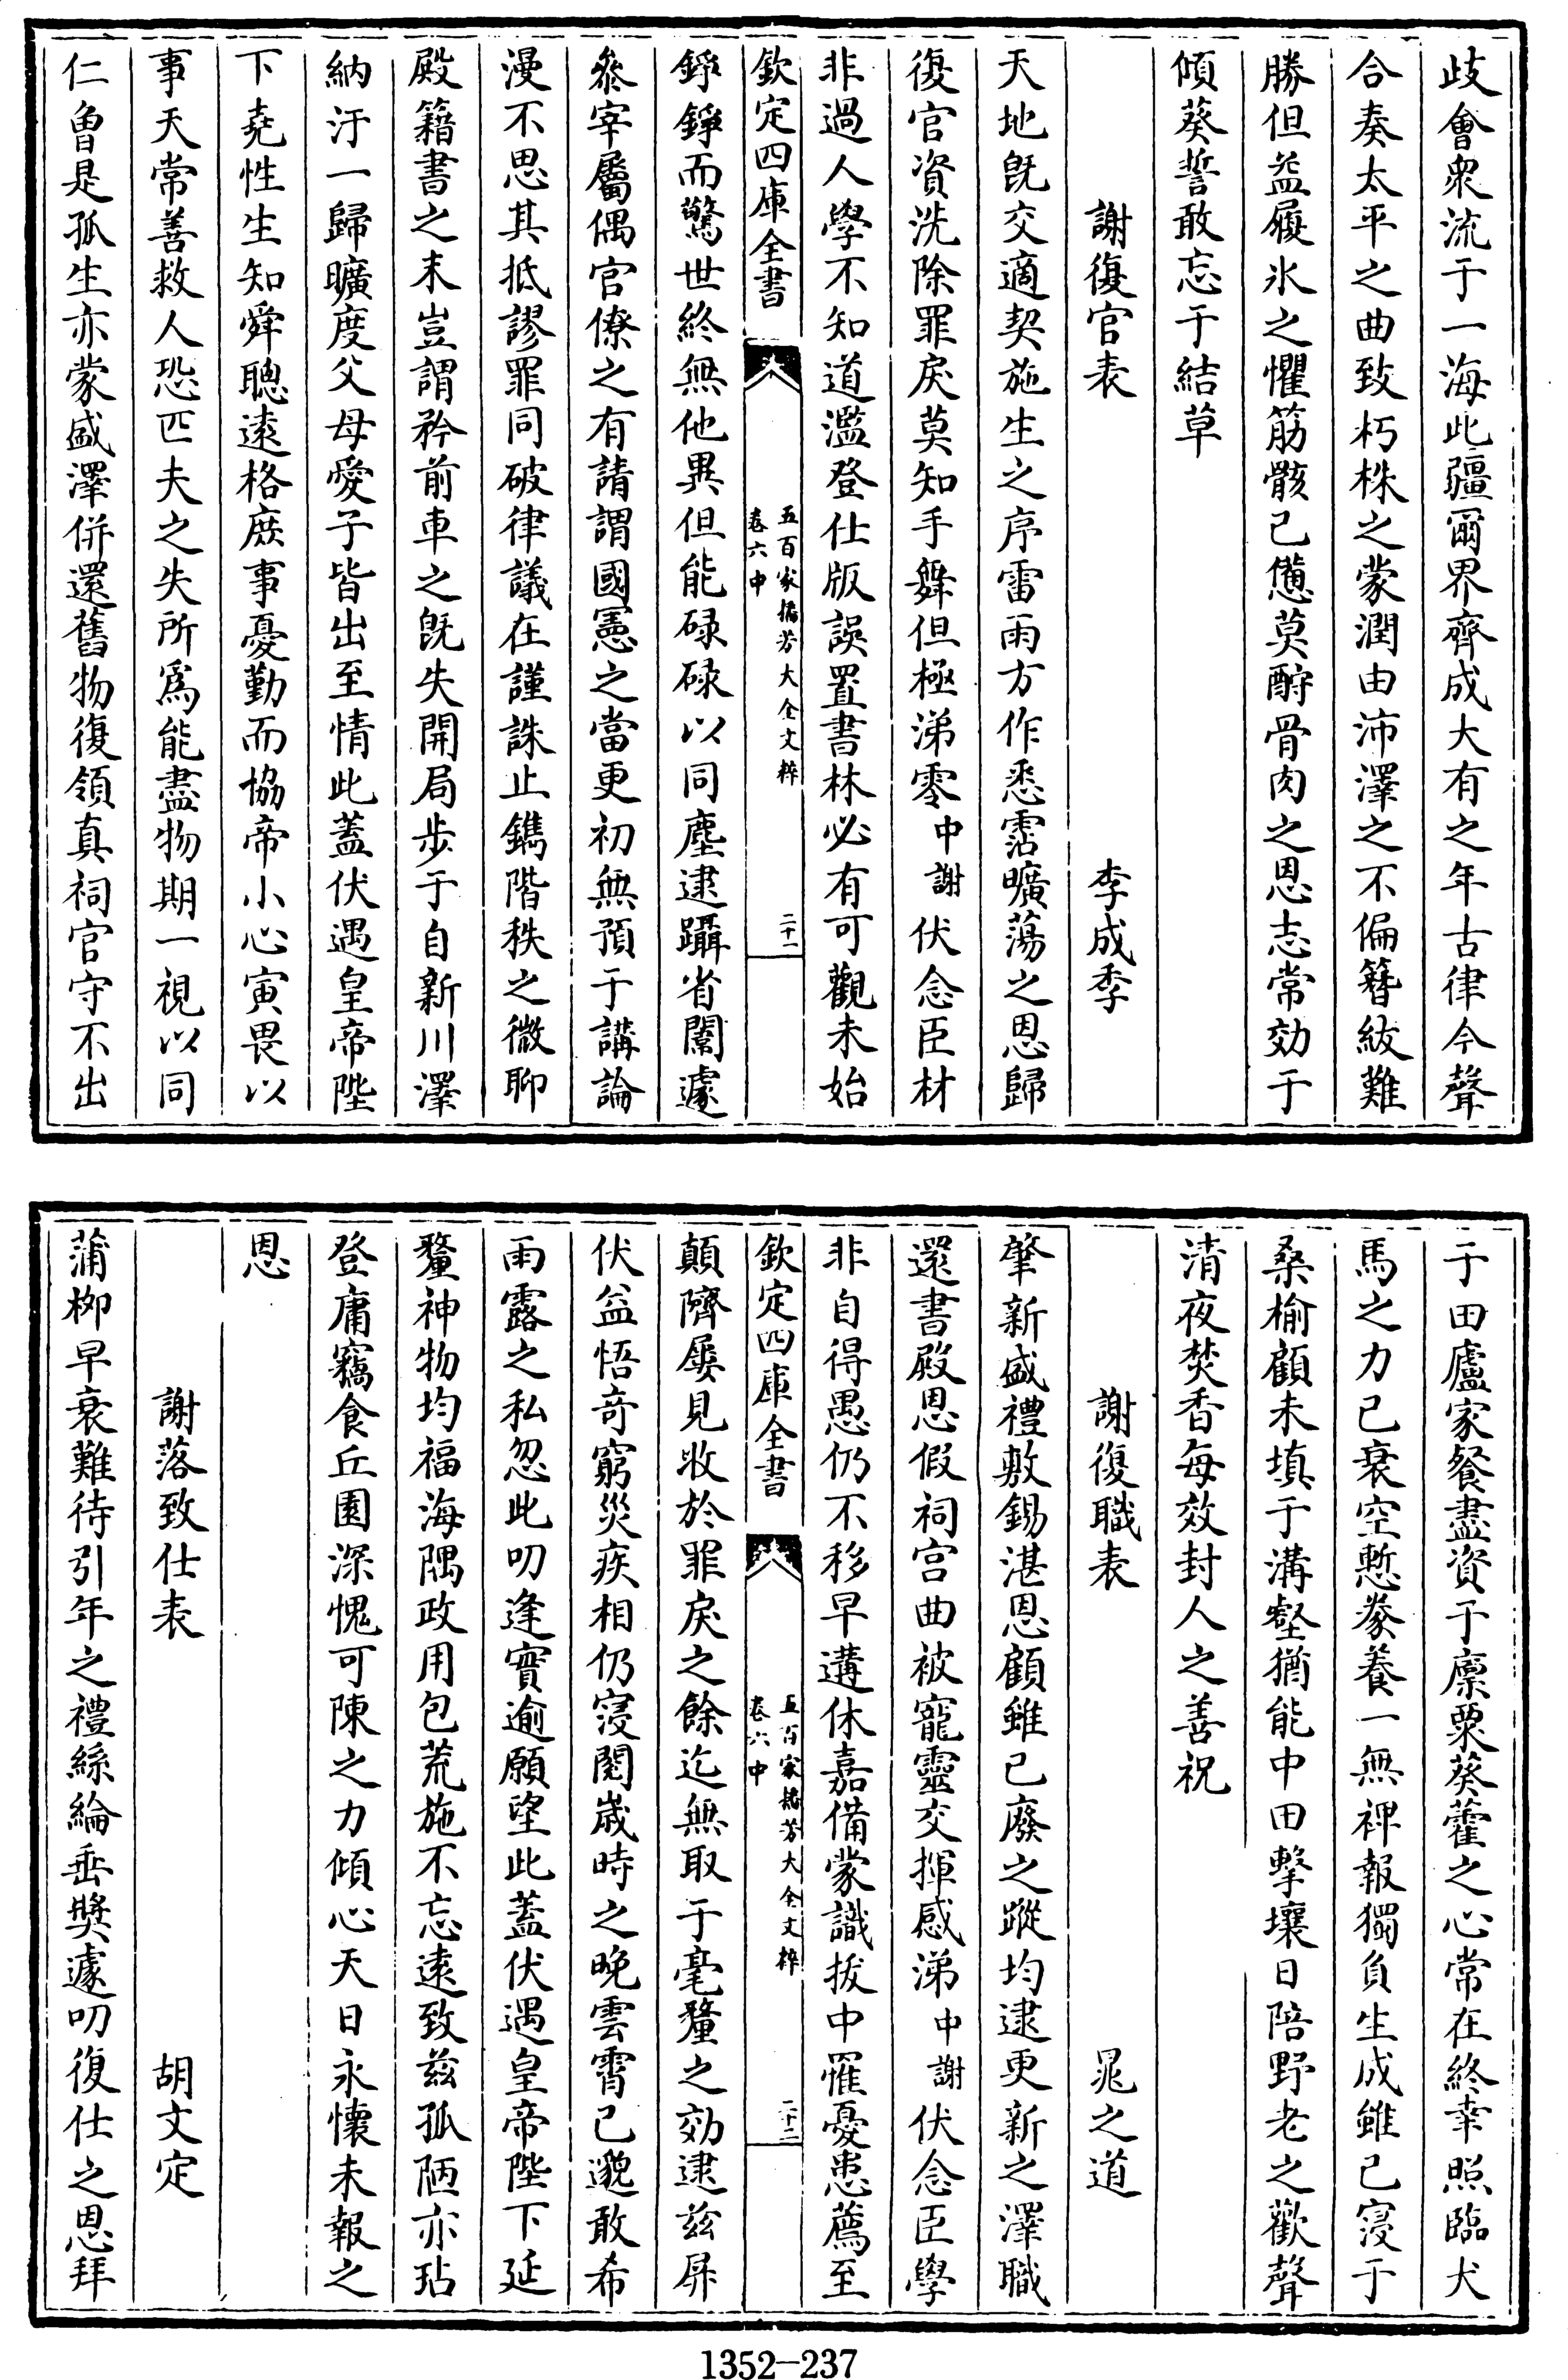 歧會衆流于一海此疆爾界齊成大有之年古律今聲
合奏太平之曲致朽株之蒙潤由沛澤之不偏簪紱難
勝但益履氷之懼筋骸已憊莫酧骨肉之恩志常効于
傾葵誓敢忘于結草
謝復官表 李成季
天地旣交適契施生之序雷雨方作悉霑曠蕩之恩歸
復官資洗除罪戾莫知手舞但極涕零中謝伏念臣材
非過人學不知道濫登仕版誤置書林必有可觀未始
欽定四庫全書 五百家播芳大全文粹 卷六中 二十一
錚錚而驚世終無他異但能碌碌以同塵逮躡省闥遽
叅宰屬偶官僚之有請謂國憲之當更初無預于講論
漫不思其抵謬罪同破律議在謹誅止鐫階秩之微聊
殿籍書之末豈謂矜前車之旣失開局步于自新川澤
納汙一歸曠度父母愛子皆出至情此蓋伏遇皇帝陛
下堯性生知舜聰逺格庶事憂勤而協帝小心寅畏以
事天常善救人恐匹夫之失所爲能盡物期一視以同
仁曾是孤生亦蒙盛澤併還舊物復領真祠官守不出
于田廬家餐盡資于廪粟葵藿之心常在終幸照臨犬
馬之力已衰空慙豢養一無裨報獨負生成雖已寖于
桑榆顧未填于溝壑猶能中田擊壤日陪野老之歡聲
清夜焚香每效封人之善祝
謝復職表 晁之道
肇新盛禮敷錫湛恩顧雖已廢之蹤均逮更新之澤職
還書殿恩假祠宫曲被寵靈交揮感涕中謝伏念臣學
非自得愚仍不移早遘休嘉備蒙識拔中罹憂患薦至
欽定四庫全書 五百家播芳大全文粹 卷六中 二十二
顛隮屢見收於罪戾之餘迄無取于毫釐之効逮兹屏
伏益悟竒窮災疾相仍寖閲嵗時之晚雲霄已邈敢希
雨露之私忽此叨逢實逾願望此蓋伏遇皇帝陛下延
釐神物均福海隅政用包荒施不忘逺致兹孤陋亦玷
登庸竊食丘園深愧可陳之力傾心天日永懷未報之
恩
謝落致仕表 胡文定
蒲栁早衰難待引年之禮絲綸垂奬遽叨復仕之恩拜
1352-237